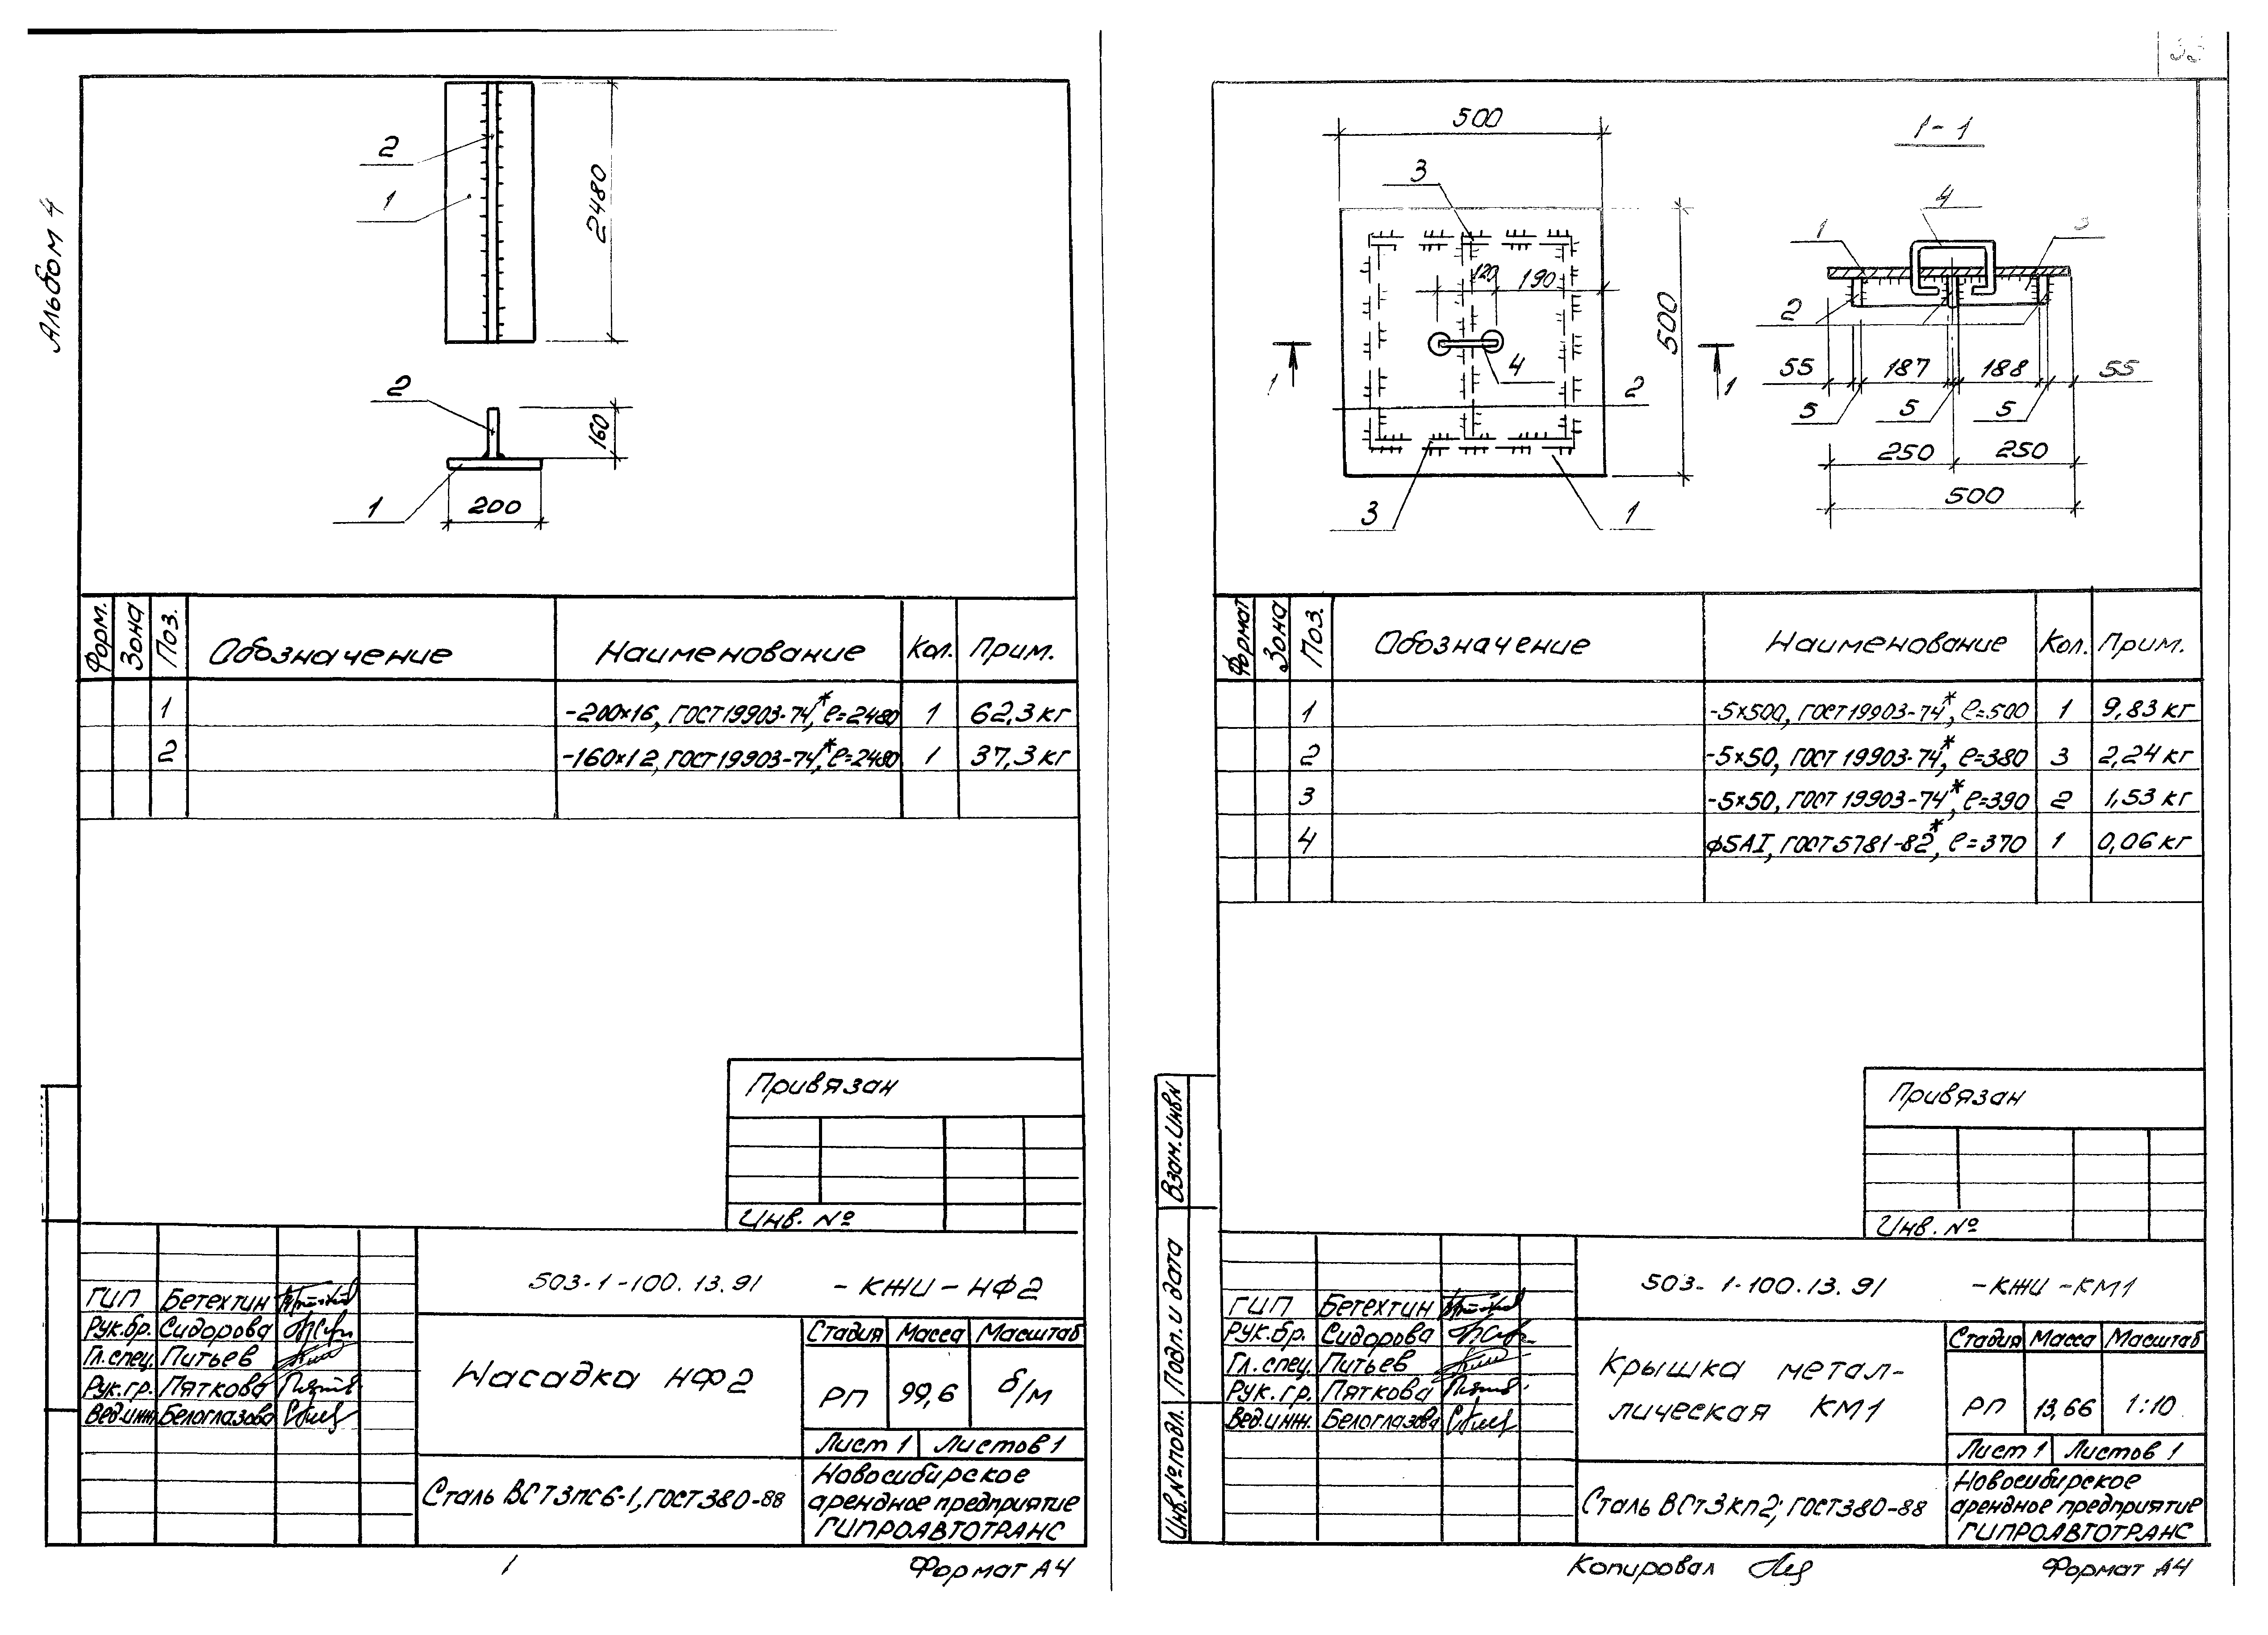 Альбом 4
2
1
2480
2
160
1
200
Форм. Зона Поз. Обозначение Наименование Кол. Прим.
1 -200×16, ГОСТ 19903-74*, ℓ=2480 1 62,3 кг
2 -160×12, ГОСТ 19903-74*, ℓ=2480 1 37,3 кг
Привязан
Инв. №
503-1-100.13.91 -КЖИ-НФ2
ГИП Бетехтин
Рук.бр. Сидорова
Гл.спец. Питьев
Рук.гр. Пяткова
Вед.инж. Белоглазова
Насадка НФ2
Стадия Масса Масштаб
РП 99,6 б/м
Лист 1 Листов 1
Сталь ВСт3пс6-1, ГОСТ 380-88
Новосибирское
арендное предприятие
ГИПРОАВТОТРАНС
Формат А4
33
500
3
120
190
500
1
1
4
2
3
1
1-1
4
1
3
2
55 187 188 55
5 5 5
250 250
500
Формат Зона Поз. Обозначение Наименование Кол. Прим.
1 -5×500, ГОСТ 19903-74*, ℓ=500 1 9,83 кг
2 -5×50, ГОСТ 19903-74*, ℓ=380 3 2,24 кг
3 -5×50, ГОСТ 19903-74*, ℓ=390 2 1,53 кг
4 ф5АI, ГОСТ 5781-82*, ℓ=370 1 0,06 кг
Привязан
Инв. №
Взам.инв№
Подп. и дата
Инв.№подл.
503-1-100.13.91 -КЖИ-КМ1
ГИП Бетехтин
Рук.бр. Сидорова
Гл.спец. Питьев
Рук.гр. Пяткова
Вед.инж. Белоглазова
Крышка метал-
лическая КМ1
Стадия Масса Масштаб
РП 13,66 1:10
Лист 1 Листов 1
Сталь ВСт3кп2; ГОСТ 380-88
Новосибирское
арендное предприятие
ГИПРОАВТОТРАНС
Копировал
Формат А4